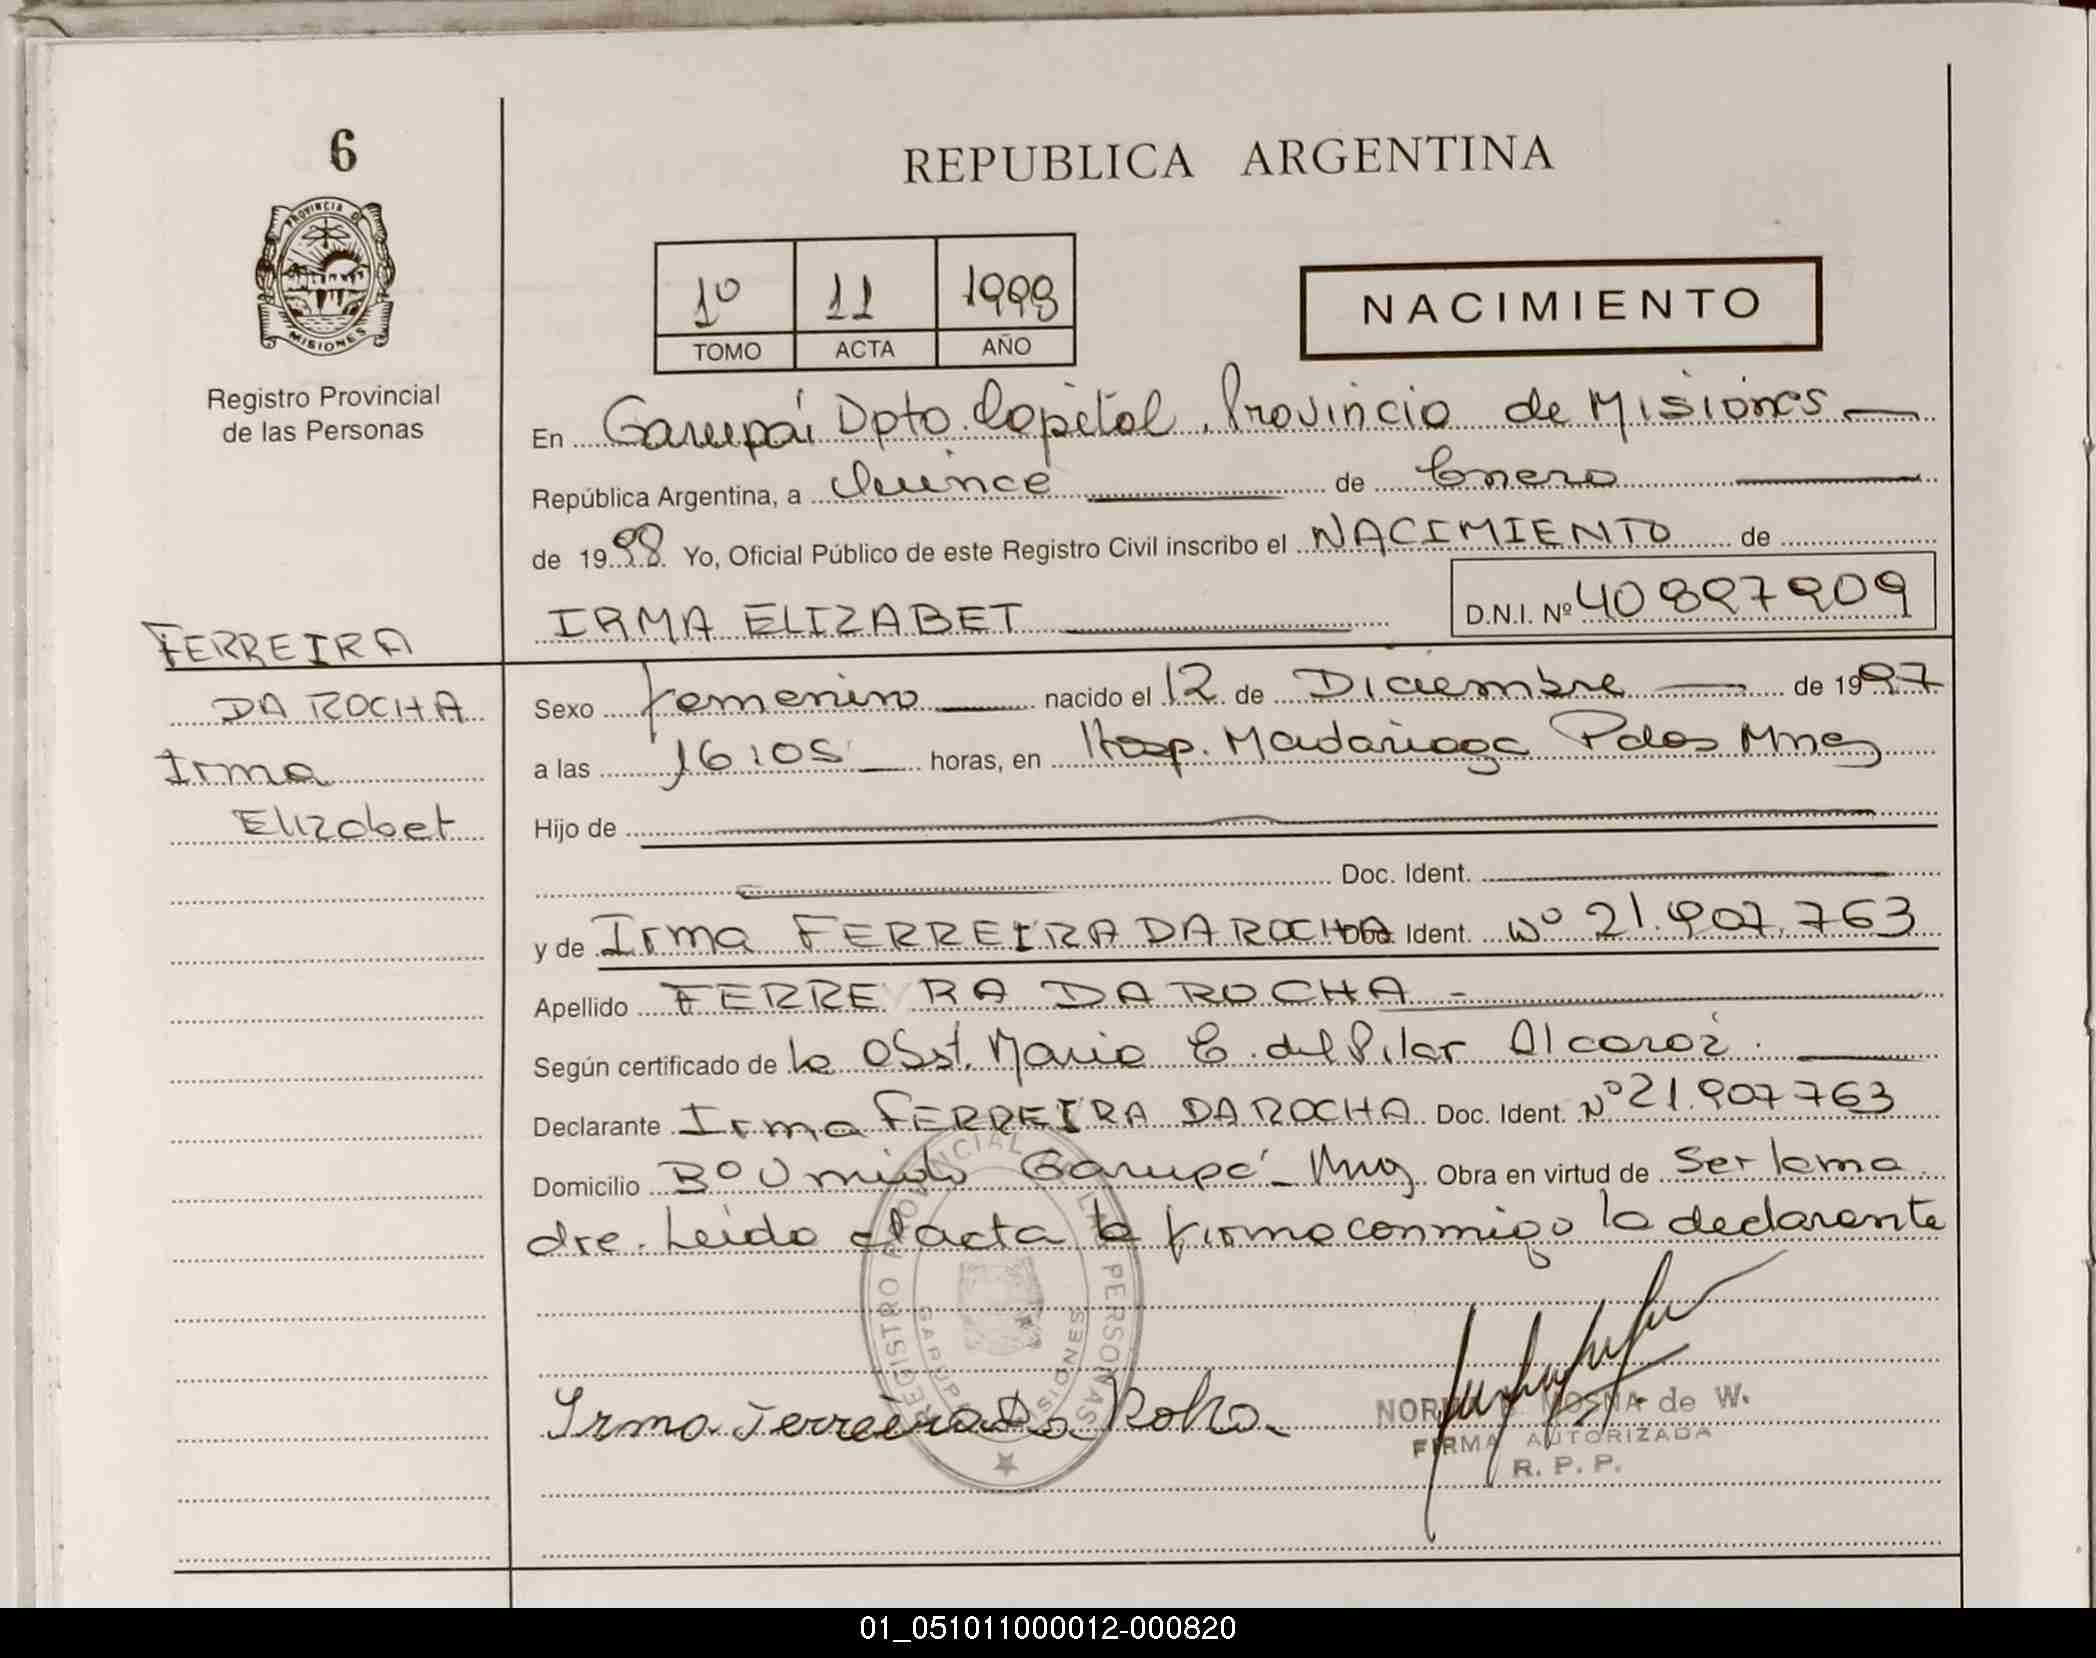 6
PROVINCIA D
MISIONES
Registro Provincial
de las Personas
REPUBLICA ARGENTINA
1º 11 1998
TOMO ACTA AÑO
NACIMIENTO
En Garupá Dpto. Capital, Provincia de Misiones
República Argentina, a Quince de Enero
de 1998 Yo, Oficial Público de este Registro Civil inscribo el NACIMIENTO de
IRMA ELIZABET D.N.I. Nº 40897909
FERREIRA
DA ROCHA
Irma
Elizabet
Sexo femenino nacido el 12 de Diciembre de 1997
a las 16:05 horas, en Hosp. Madariaga Pdas Mnes
Hijo de
Doc. Ident.
y de Irma FERREIRA DA ROCHA Doc. Ident. Nº 21.907.763
Apellido FERREIRA DA ROCHA -
Según certificado de la Obst. Maria E. del Pilar Alcaraz.
Declarante Irma FERREIRA DA ROCHA Doc. Ident. Nº 21.907763
Domicilio Bº Unido Garupá - Mnes Obra en virtud de Ser la ma
dre. Leido el acta la firma conmigo la declarante
REGISTRO PROVINCIAL DE LAS PERSONAS
GARUPA MISIONES
Irma Ferreira Da Roha
MOSNA de W.
FIRMA AUTORIZADA
R. P. P.
01_051011000012-000820